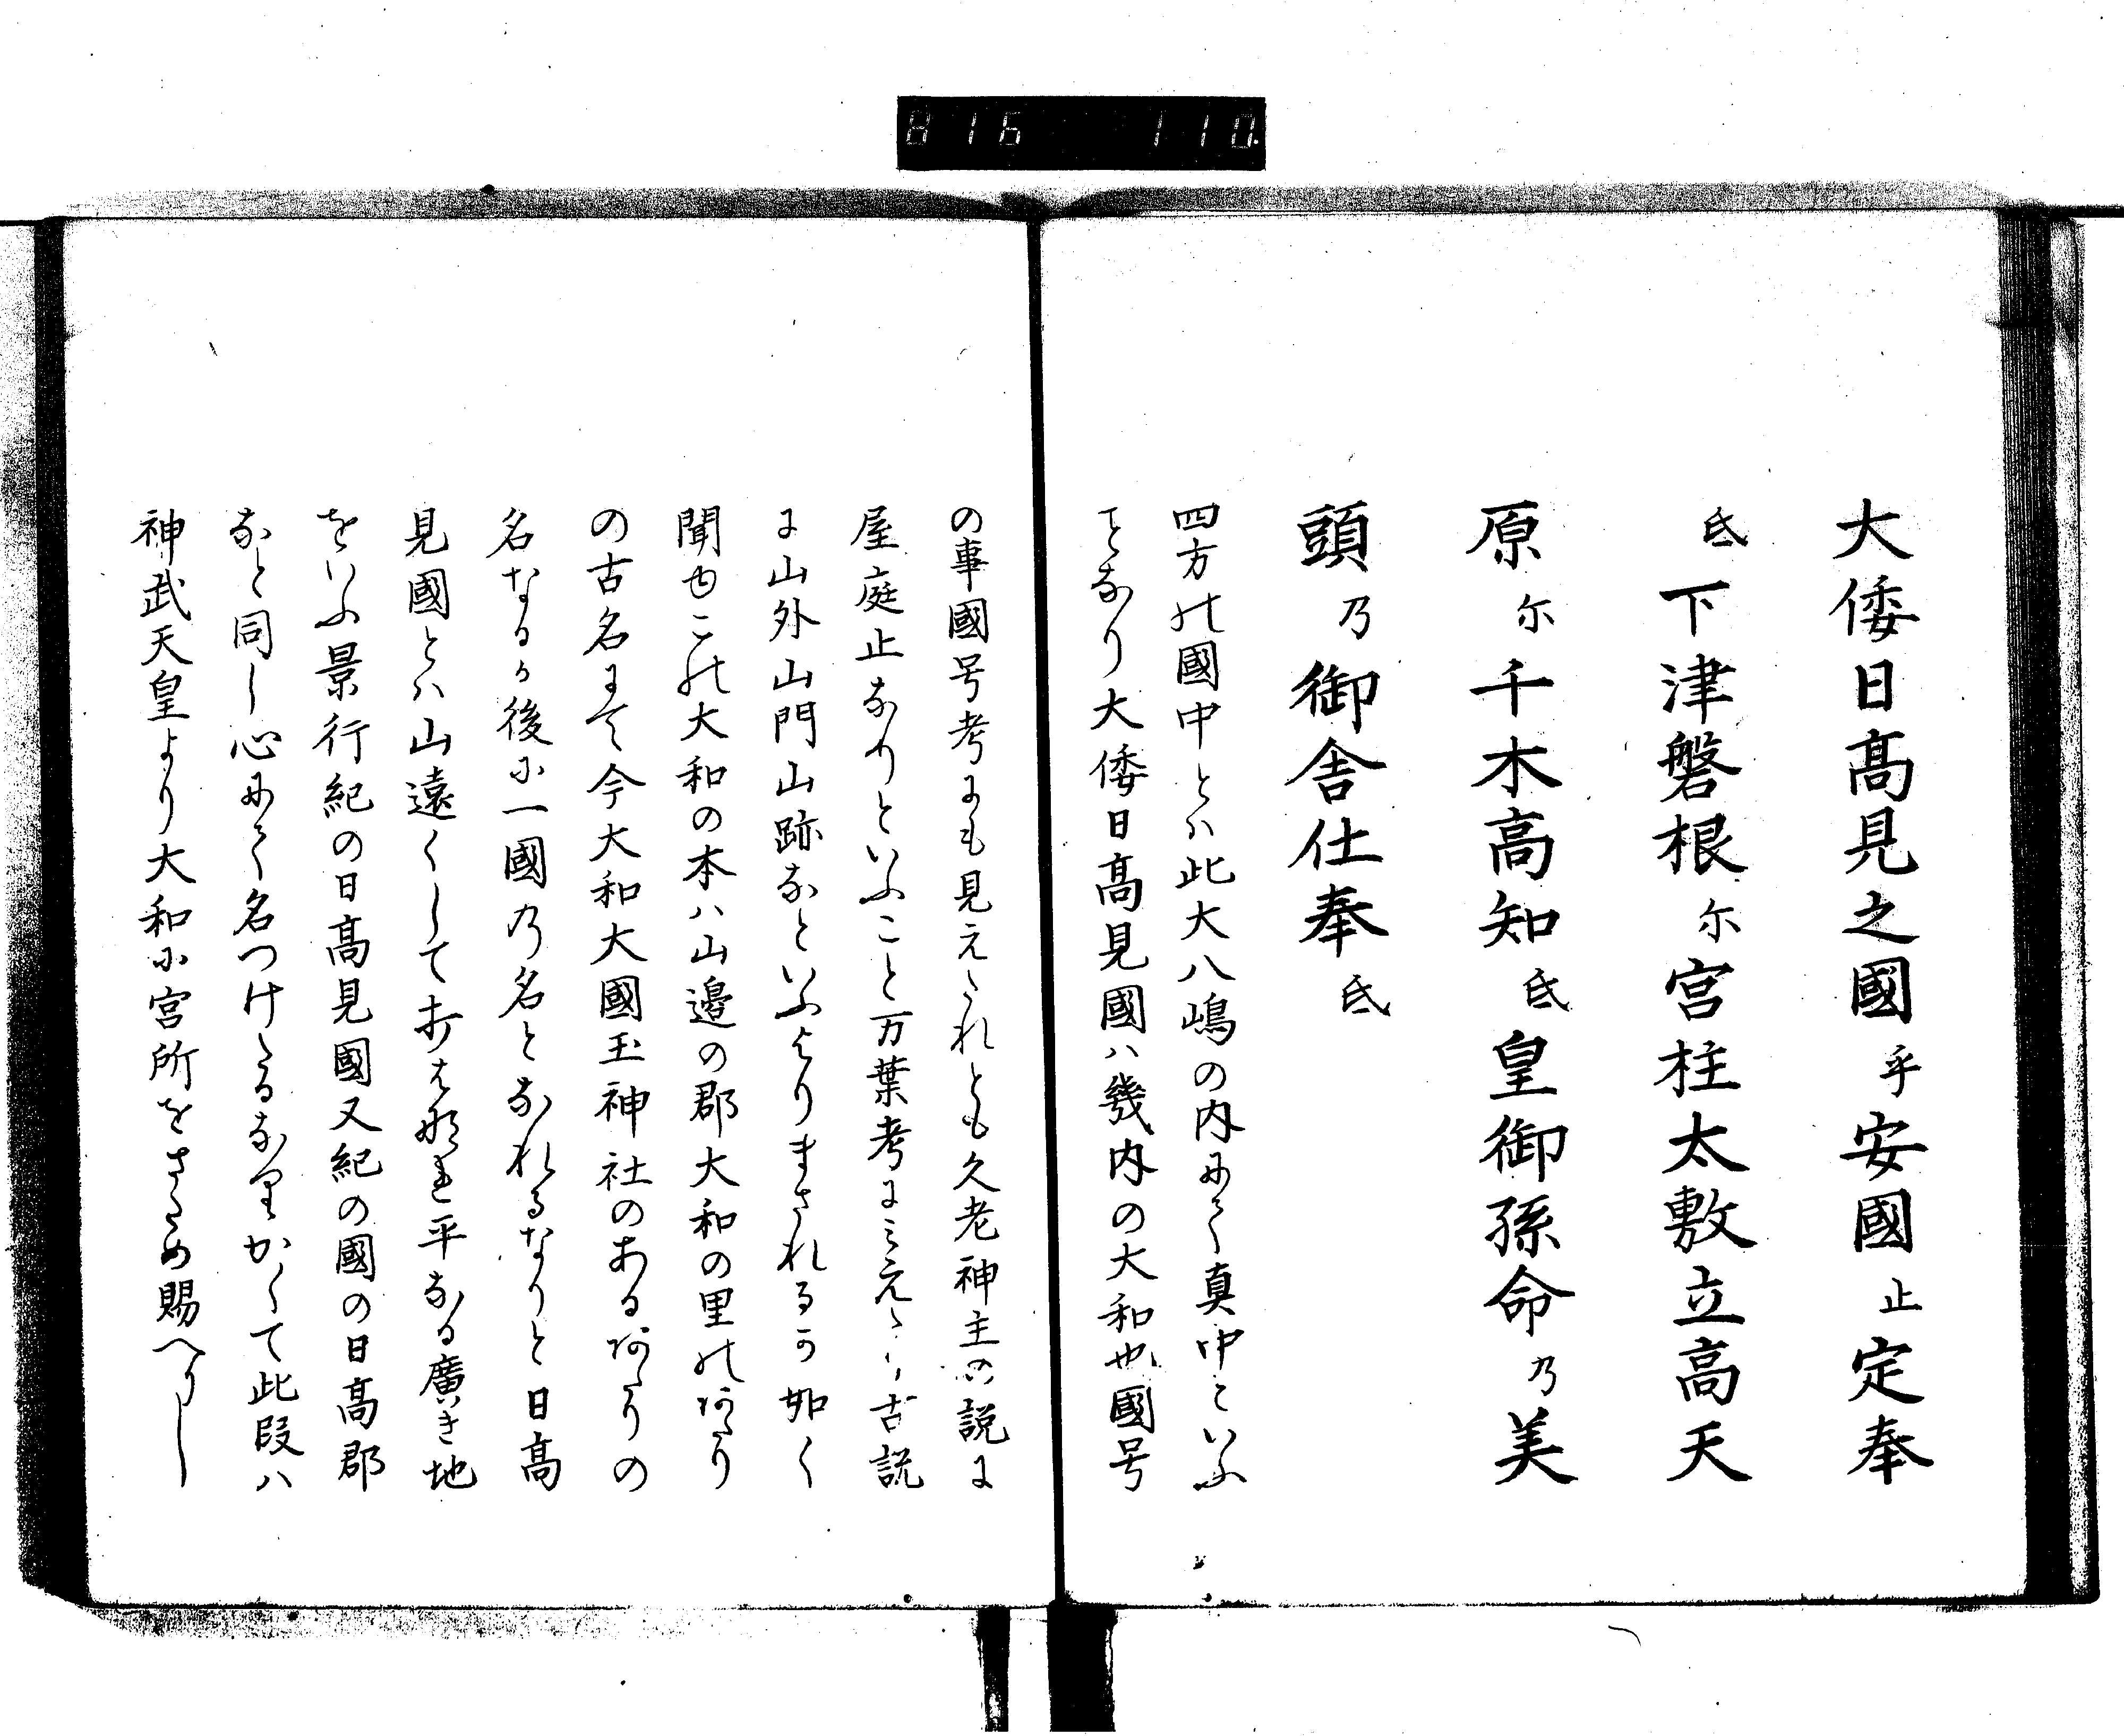 816 110.
大倭日髙見之國乎安國止定奉
氐下津磐根尓宮柱太敷立高天
原尓千木高知氐皇御孫命乃美
頭乃御舎仕奉氐
四方の國中とハ此大八嶋の内にて真中といふ
ことなり大倭日髙見國ハ畿内の大和也國号
の事國号考にも見えたれとも久老神主の説に
屋庭止なりといふこと万葉考にみえたり古説
に山外山門山跡なといふよりまされるか如く
聞ゆこの大和の本ハ山邉の郡大和の里のあたり
の古名にて今大和大國玉神社のあるあたりの
名なるか後に一國乃名となれるなりと日髙
見國とハ山遠くして打はれ平なる廣き地
をいふ景行紀の日髙見國又紀の國の日髙郡
なと同し心にて名つけたるなりかくて此段ハ
神武天皇より大和に宮所をさため賜へりし